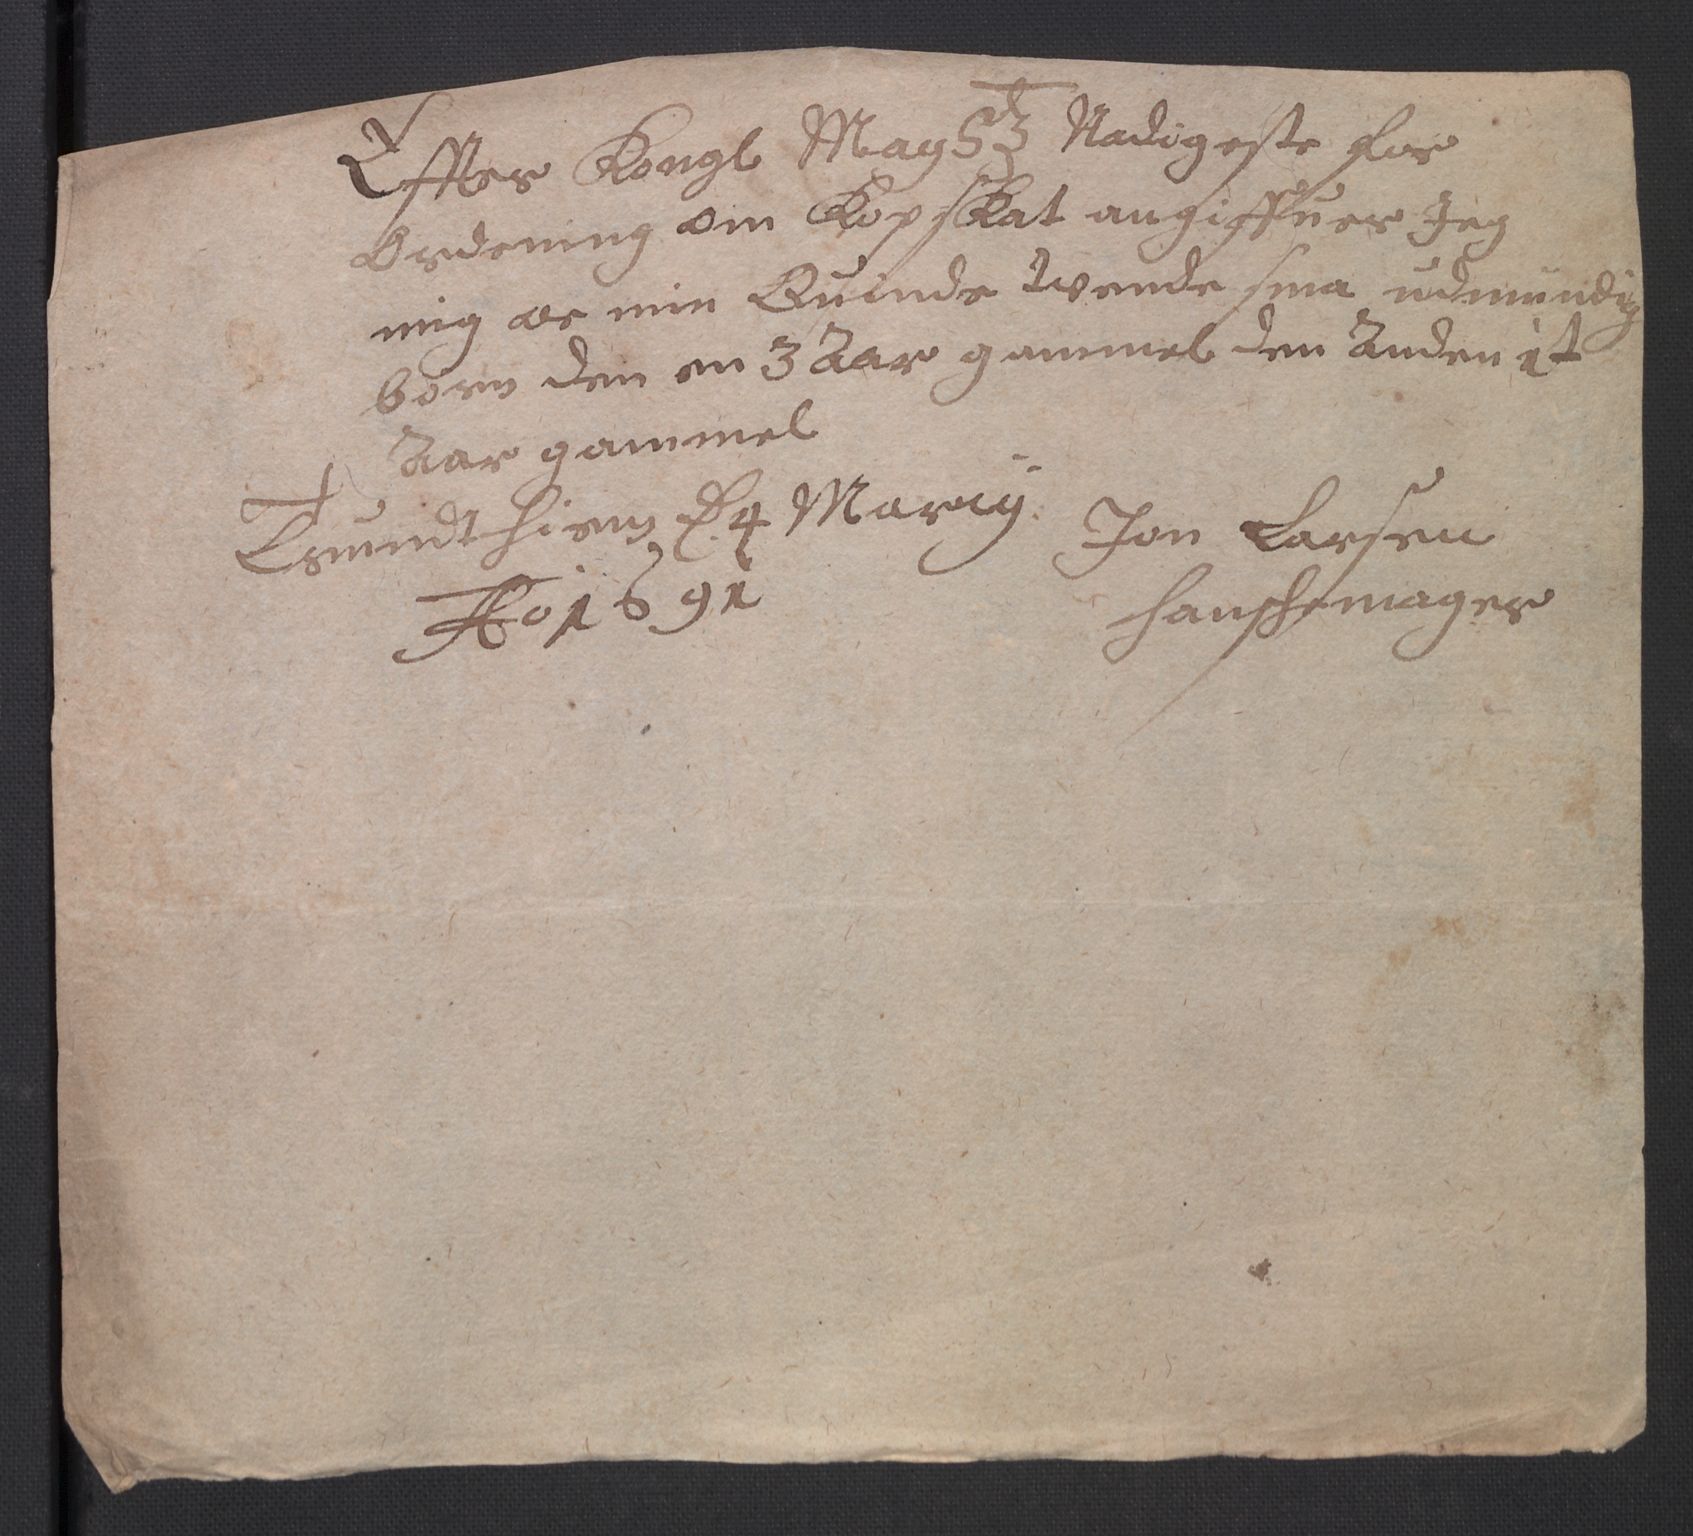 Effter Kongl Mayetz Nadigeste for
Ordening om Kopskat angiffuer Jeg
mig oc min Quinde twende sma udmundig
born den en 3 Aar gammel den Anden it
Aar gammel
Trundthiem D. 4 Marcij
Ao 1691
Jon Larsen
hanskemager